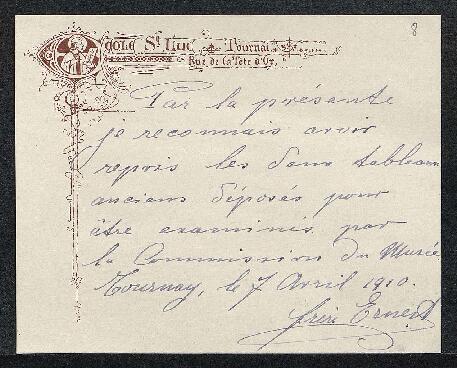 8
Ecole St Luc Tournai
Rue de la Tête d'Or,
Par la présente
je reconnais avoir
repris les deux tableaux
anciens déposés pour
être examinés par
la Commission du Musée
Tournay, le 7 Avril 1910.
frère Ernest